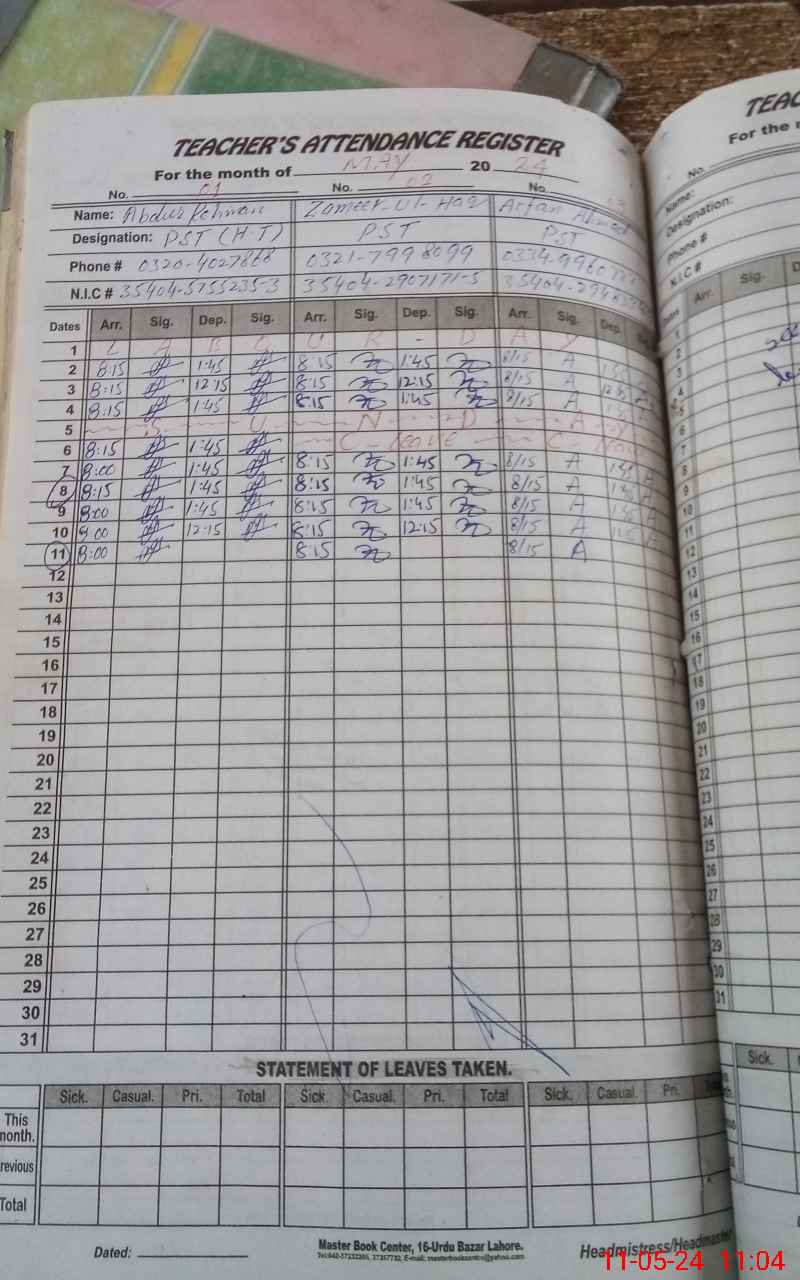 TEACHER'S ATTENDANCE REGISTER
For the month of MAY 20 24
No. 01 No. 02 No.
Name: Abdur Rehman Zameer-Ul-Haq Arfan Ahmed
Designation: PST (H-T) PST PST
Phone # 0320-4027868 0321-7998099 0334-9960
N.I.C # 35404-5755235-3 35404-2907171-5 35404-294
Dates Arr. Sig. Dep. Sig. Arr. Sig. Dep. Sig. Arr. Sig. Dep.
1 L A B O U R - D A Y
2 8:15 1:45 8:15 1:45 8/15 A
3 8:15 12:15 8:15 12:15 8/15 A
4 8:15 1:45 8:15 1:45 8/15 A
5 S U N D A Y
6 8:15 1:45 C - leave C
7 8:00 1:45 8:15 1:45 8/15 A
8 8:15 1:45 8:15 1:45 8/15 A
9 8:00 1:45 8:15 1:45 8/15 A
10 8:00 12:15 8:15 12:15 8/15 A
11 8:00 8:15 8/15 A
12
13
14
15
16
17
18
19
20
21
22
23
24
25
26
27
28
29
30
31
STATEMENT OF LEAVES TAKEN.
Sick. Casual. Pri. Total Sick. Casual. Pri. Total Sick. Casual. Pri.
This month.
revious
Total
Dated:
Master Book Center, 16-Urdu Bazar Lahore.
Headmistress/Headmaster
TEAC
For the
No.
Name:
Designation:
Phone #
N.I.C #
Arr. Sig. D
1
2
3
4
5
6
7
8
9
10
11
12
13
14
15
16
17
18
19
20
21
22
23
24
25
26
27
28
29
30
31
Sick.
11-05-24 11:04